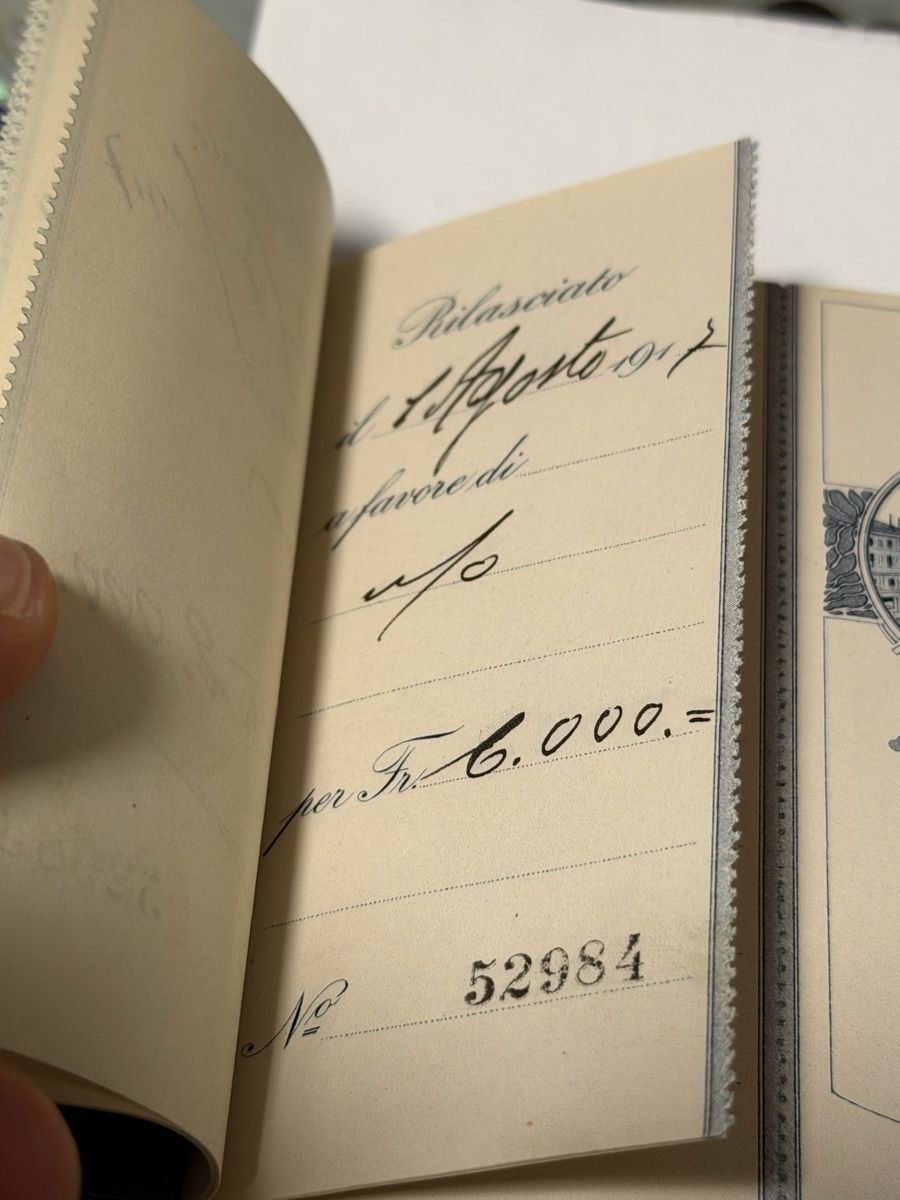 Rilasciato
il 1 Agosto 1917
a favore di
m/o
per Fr. 6.000.=
No 52984